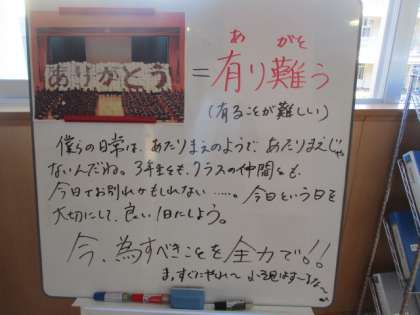 ありがとう
あ がと
= 有り難う
(有ることが難しい)
僕らの日常は、あたりまえのようで、あたりまえじゃ
ないんだね。3年生とも、クラスの仲間とも、
今日でお別れかもしれない……。今日という日を
大切にして、良い1日にしよう。
今、為すべきことを全力で!!